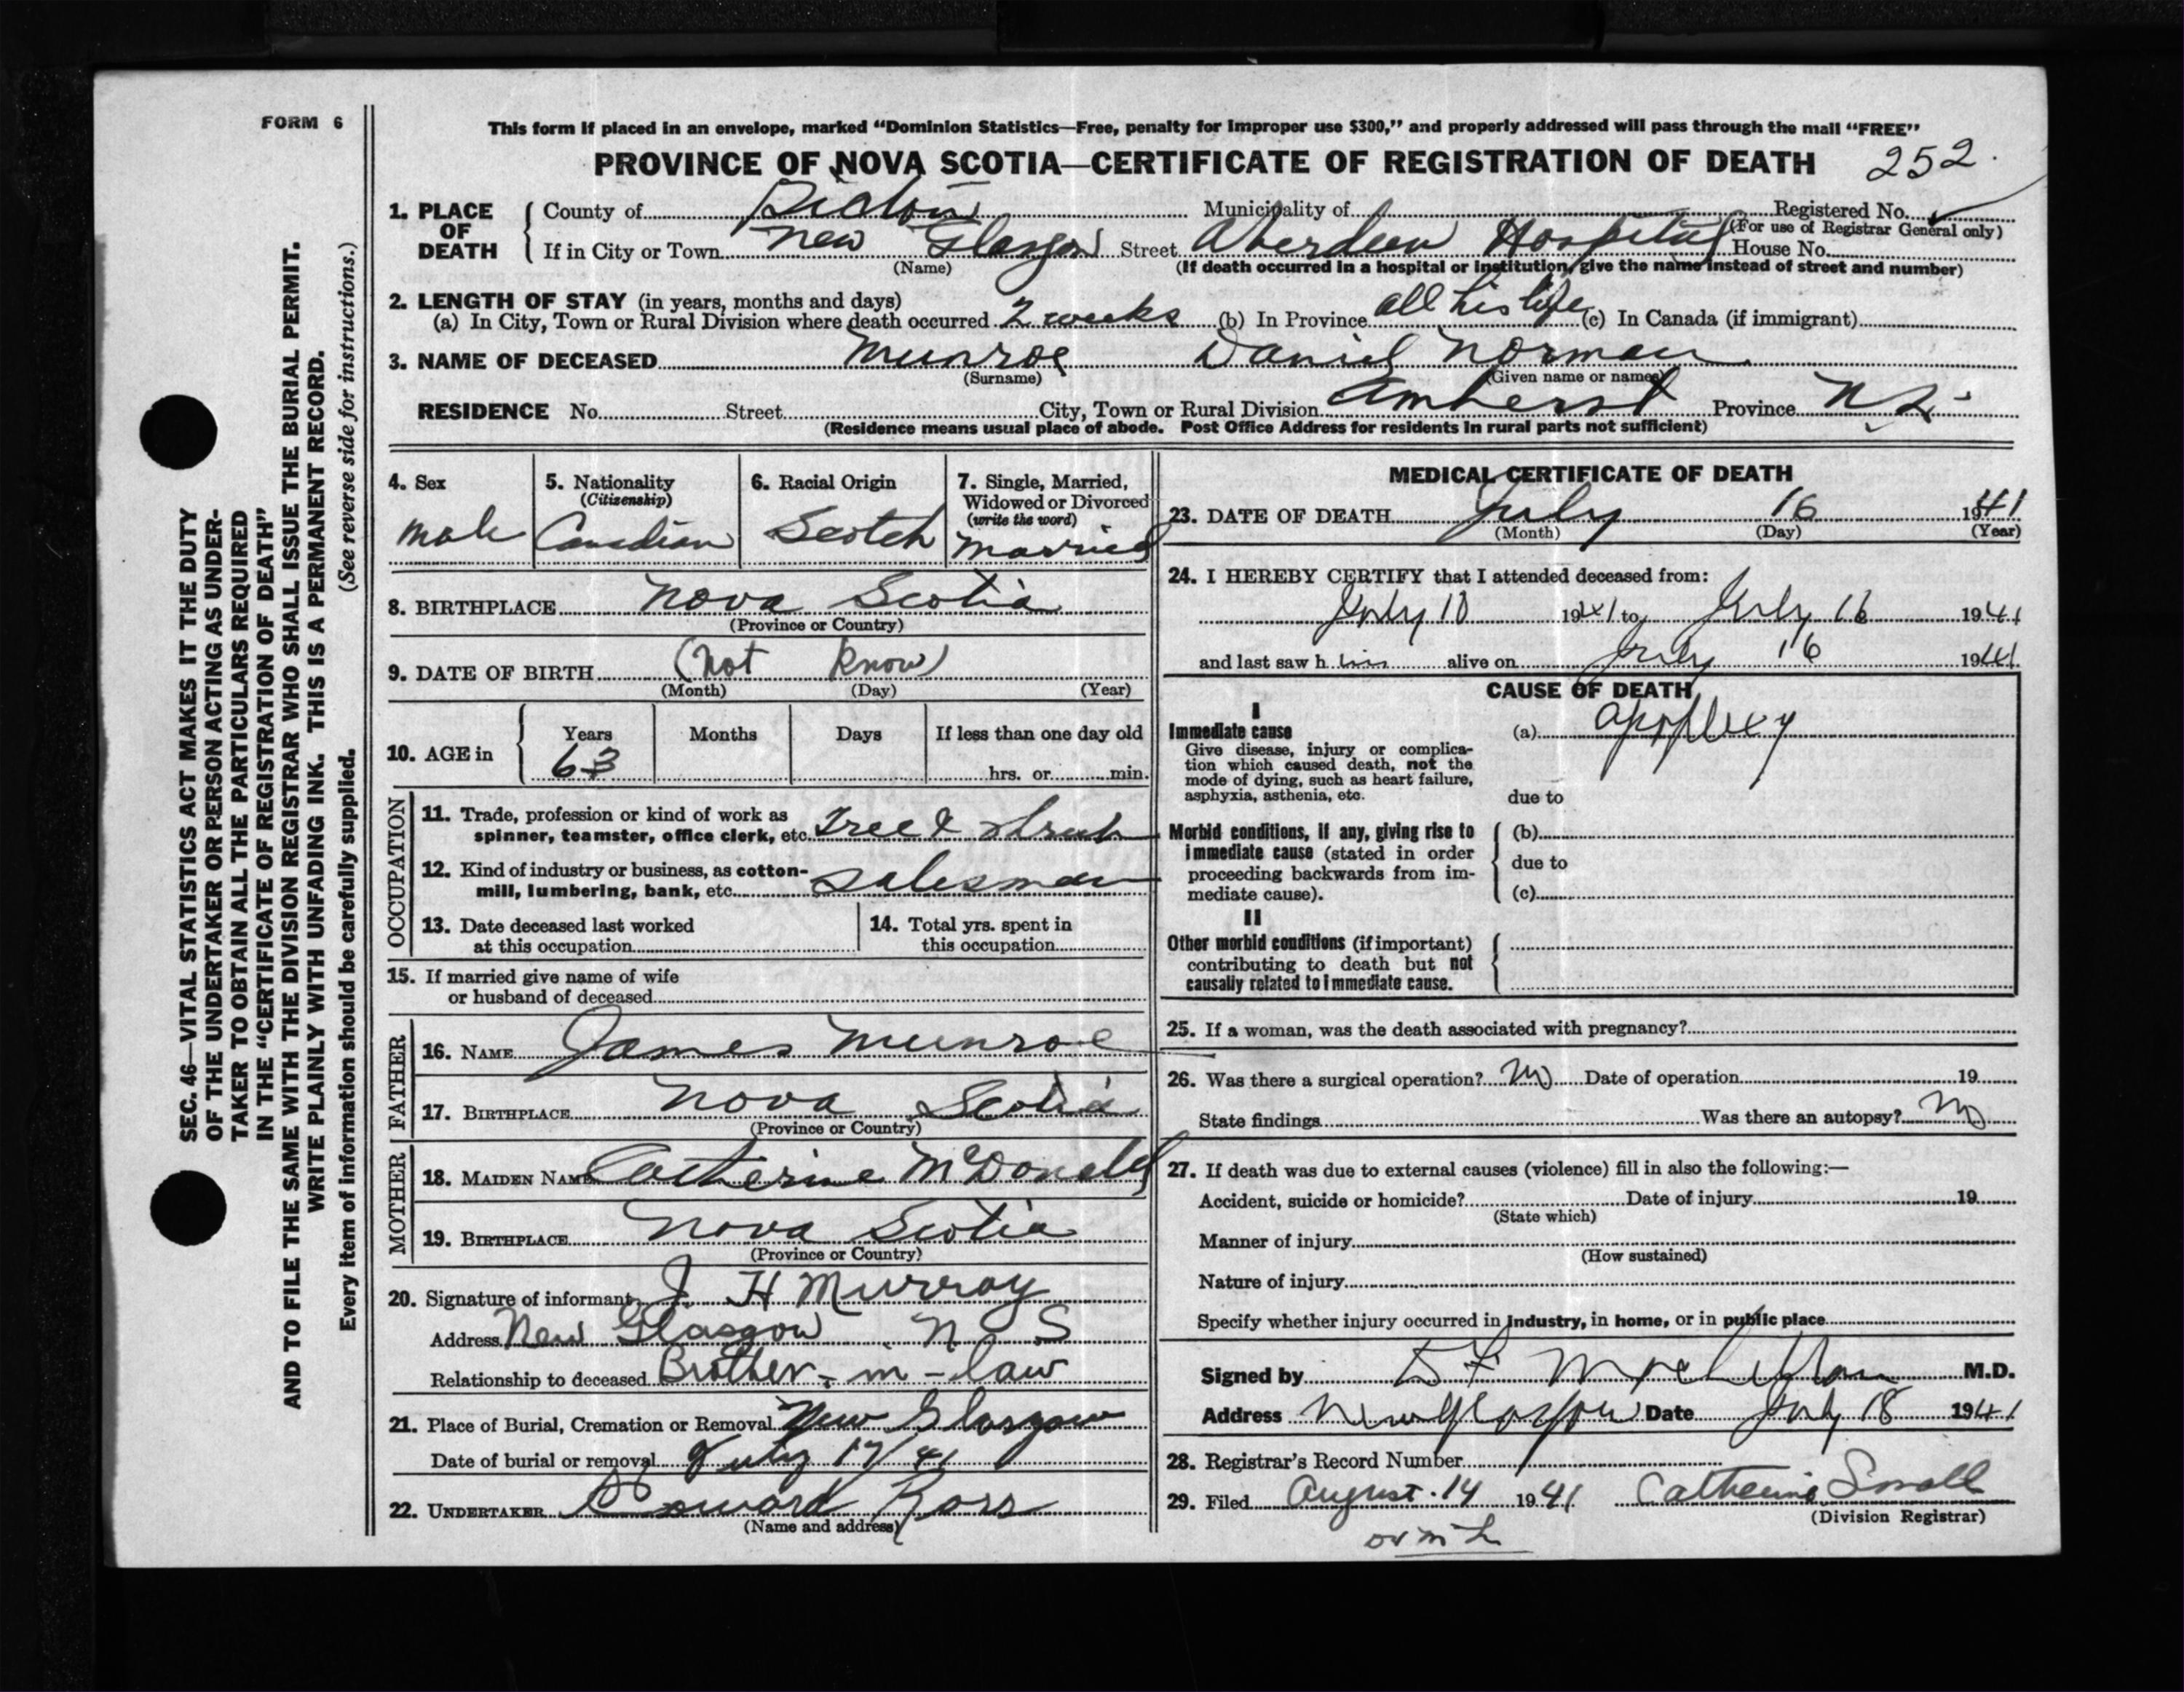 FORM 6
This form if placed in an envelope, marked “Dominion Statistics—Free, penalty for improper use $300,” and properly addressed will pass through the mail “FREE”
PROVINCE OF NOVA SCOTIA—CERTIFICATE OF REGISTRATION OF DEATH 252.
1. PLACE OF DEATH
County of Pictou Municipality of Registered No.
(For use of Registrar General only)
If in City or Town New Glasgow Street Aberdeen Hospital House No.
(Name) (If death occurred in a hospital or institution, give the name instead of street and number)
2. LENGTH OF STAY (in years, months and days)
(a) In City, Town or Rural Division where death occurred 2 weeks (b) In Province all his life (c) In Canada (if immigrant)
3. NAME OF DECEASED Munroe Daniel Norman
(Surname) (Given name or names)
RESIDENCE No. Street City, Town or Rural Division Amherst Province N S.
(Residence means usual place of abode. Post Office Address for residents in rural parts not sufficient)
4. Sex
male
5. Nationality
(Citizenship)
Canadian
6. Racial Origin
Scotch
7. Single, Married,
Widowed or Divorced
(write the word)
married
8. BIRTHPLACE Nova Scotia
(Province or Country)
9. DATE OF BIRTH (not know)
(Month) (Day) (Year)
10. AGE in
Years Months Days If less than one day old
63 hrs. or min.
OCCUPATION
11. Trade, profession or kind of work as
spinner, teamster, office clerk, etc. Tree & Shrub
12. Kind of industry or business, as cotton-
mill, lumbering, bank, etc. salesman
13. Date deceased last worked
at this occupation
14. Total yrs. spent in
this occupation
15. If married give name of wife
or husband of deceased
FATHER
16. NAME James Munroe
17. BIRTHPLACE Nova Scotia
(Province or Country)
MOTHER
18. MAIDEN NAME Catherine McDonald
19. BIRTHPLACE Nova Scotia
(Province or Country)
20. Signature of informant J. H Murray
Address New Glasgow N S
Relationship to deceased Brother-in-law
21. Place of Burial, Cremation or Removal New Glasgow
Date of burial or removal July 17/41
22. UNDERTAKER Coward Ross
(Name and address)
MEDICAL CERTIFICATE OF DEATH
23. DATE OF DEATH July 16 1941
(Month) (Day) (Year)
24. I HEREBY CERTIFY that I attended deceased from:
July 10 1941 to July 16 1941
and last saw him alive on July 16 1941
CAUSE OF DEATH
I
Immediate cause
Give disease, injury or complica-
tion which caused death, not the
mode of dying, such as heart failure,
asphyxia, asthenia, etc.
(a) apoplexy
due to
Morbid conditions, if any, giving rise to
immediate cause (stated in order
proceeding backwards from im-
mediate cause).
(b)
due to
(c)
II
Other morbid conditions (if important)
contributing to death but not
causally related to immediate cause.
25. If a woman, was the death associated with pregnancy?
26. Was there a surgical operation? No Date of operation 19
State findings Was there an autopsy? No
27. If death was due to external causes (violence) fill in also the following:—
Accident, suicide or homicide? Date of injury 19
(State which)
Manner of injury
(How sustained)
Nature of injury
Specify whether injury occurred in industry, in home, or in public place
Signed by M.D.
Address New Glasgow Date July 18 1941
28. Registrar’s Record Number
29. Filed August 14 1941 Catherine Small
(Division Registrar)
SEC. 46—VITAL STATISTICS ACT MAKES IT THE DUTY
OF THE UNDERTAKER OR PERSON ACTING AS UNDER-
TAKER TO OBTAIN ALL THE PARTICULARS REQUIRED
IN THE “CERTIFICATE OF REGISTRATION OF DEATH”
AND TO FILE THE SAME WITH THE DIVISION REGISTRAR WHO SHALL ISSUE THE BURIAL PERMIT.
WRITE PLAINLY WITH UNFADING INK. THIS IS A PERMANENT RECORD.
Every item of information should be carefully supplied. (See reverse side for instructions.)